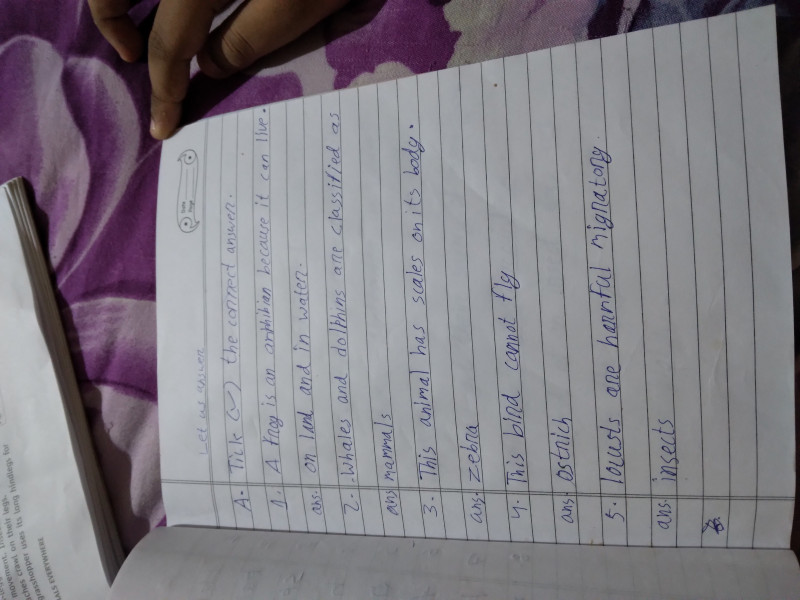 Let us answer
A. Tick (✓) the correct answer.
1. A frog is an amphibian because it can live.
ans. on land and in water.
2. Whales and dolphins are classified as
ans mammals
3. This animal has scales on its body.
ans. zebra
4. This bird cannot fly
ans. ostrich
5. locusts are harmful migratory.
ans. insects
movement. 
crawl on their legs.
grasshopper uses its long hindlegs for